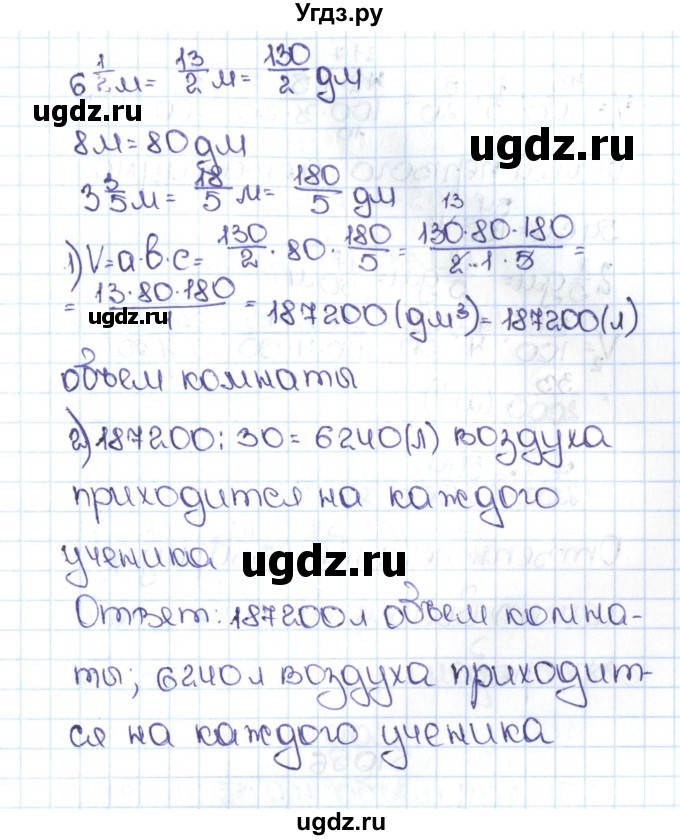 Угдз.ру
6 1/2 м = 13/2 м = 130/2 дм
ugdz.ru
ugdz.ru
8м = 80 дм
3 3/5 м = 18/5 м = 180/5 дм
13
1) V = a·b·c = 130/2 · 80 · 180/5 = 130·80·180/2·1·5 =
= 13·80·180/1 = 187200 (дм³) = 187200 (л)
ugdz.ru
объем комнаты
2) 187200 : 30 = 6240 (л) воздуха
приходится на каждого
ученика
ugdz.ru
Ответ: 187200 л объем комна-
ты; 6240 л воздуха приходит-
ся на каждого ученика
ugdz.ru
ugdz.ru